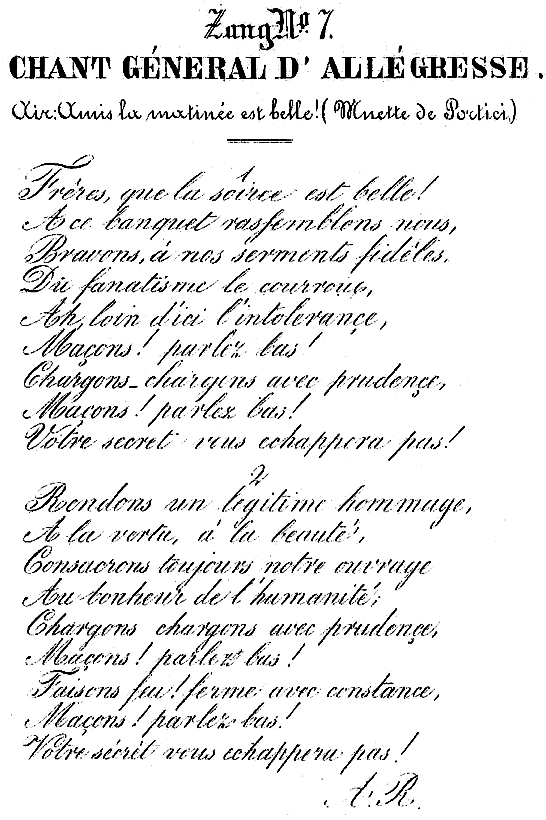 Zang No 7.
CHANT GÉNERAL D' ALLÉGRESSE.
Air: Amis la matinée est belle! (Muette de Portici.)
1
Fréres, que la soirée est belle!
A ce banquet rassemblons nous,
Bravons, á nos serments fidéles.
Du fanatisme le courrouç,
Ah, loin d'ici l'intolerançe,
Maçons! parlez bas!
Chargons-chargons avec prudençe,
Maçons! parlez bas!
Votre secret vous echappera pas!
2
Rendons un légitime hommage,
A la vertu, á la beauté,
Consacrons toujours notre ouvrage
Au bonheur de l'humanité;
Chargons chargons avec prudençe,
Maçons! parlez bas!
Faisons feu! ferme avec constance,
Maçons! parlez bas!
Votre sécrét vous echappera pas!
A. R.